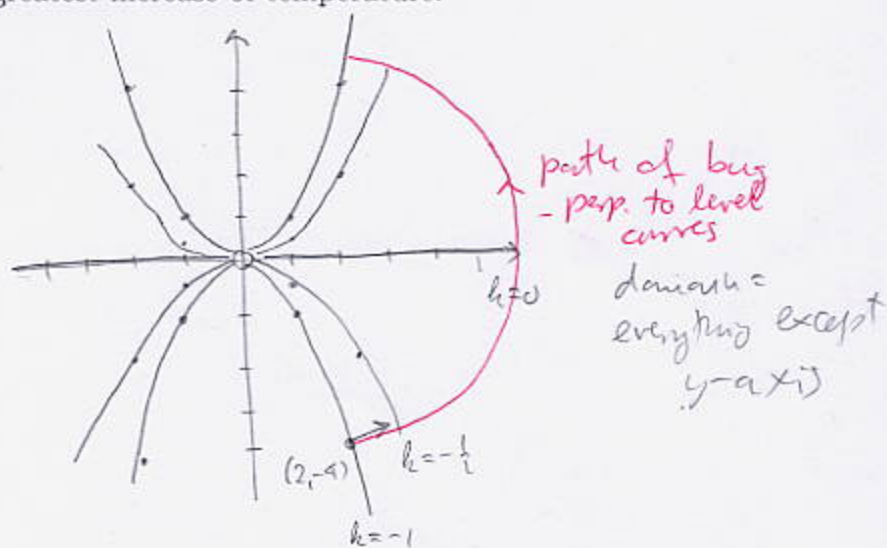 greatest increase of temperature.
path of bug
- perp. to level
curves
k=0
domain =
everything except
y-axis
(2,-4)
k=-½
k=-1